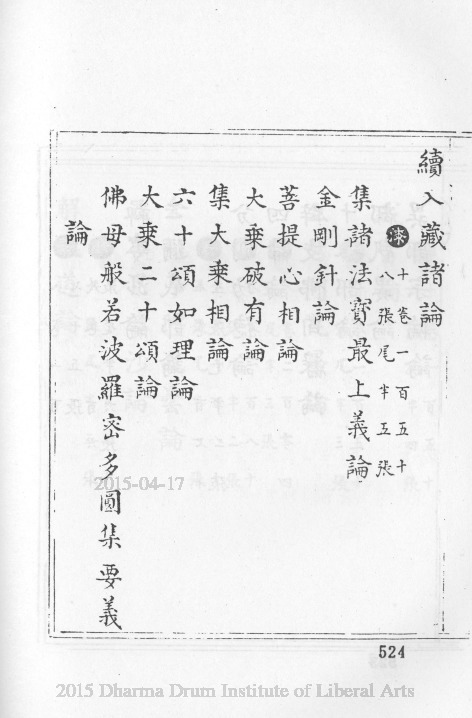 續入藏諸論
十卷一百五十
八張尾半五張
集諸法寶最上義論
金剛針論
菩提心相論
大乘破有論
集大乘相論
六十頌如理論
大乘二十頌論
佛母般若波羅密多圓集要義
論
2015-04-17
524
2015 Dharma Drum Institute of Liberal Arts